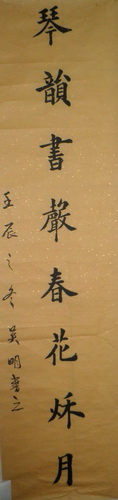 琴韻書聲春花秌月
壬辰之冬吳明